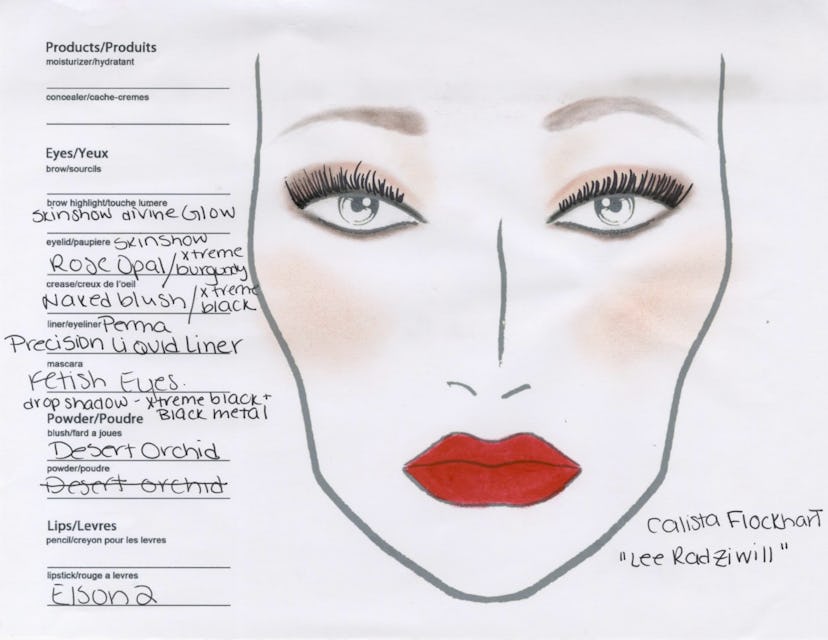 Products/Produits
moisturizer/hydratant
concealer/cache-cremes
Eyes/Yeux
brow/sourcils
brow highlight/touche lumere
Skinshow divine Glow
eyelid/paupiere Skinshow
Rose Opal/xtreme burgundy
crease/creux de l'oeil
Naked blush/xtreme black
liner/eyeliner Perma
Precision Liquid Liner
mascara
Fetish Eyes.
drop shadow - xtreme black +
Black metal
Powder/Poudre
blush/fard a joues
Desert Orchid
powder/poudre
Desert Orchid
Lips/Levres
pencil/creyon pour les levres
lipstick/rouge a levres
Elson 2
Calista Flockhart
"Lee Radziwill"